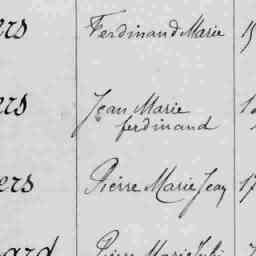 ers Ferdinand Marie 19
ers Jean Marie
ferdinand
ers Pierre Marie Jean 17
ard Pierre Marie Juli